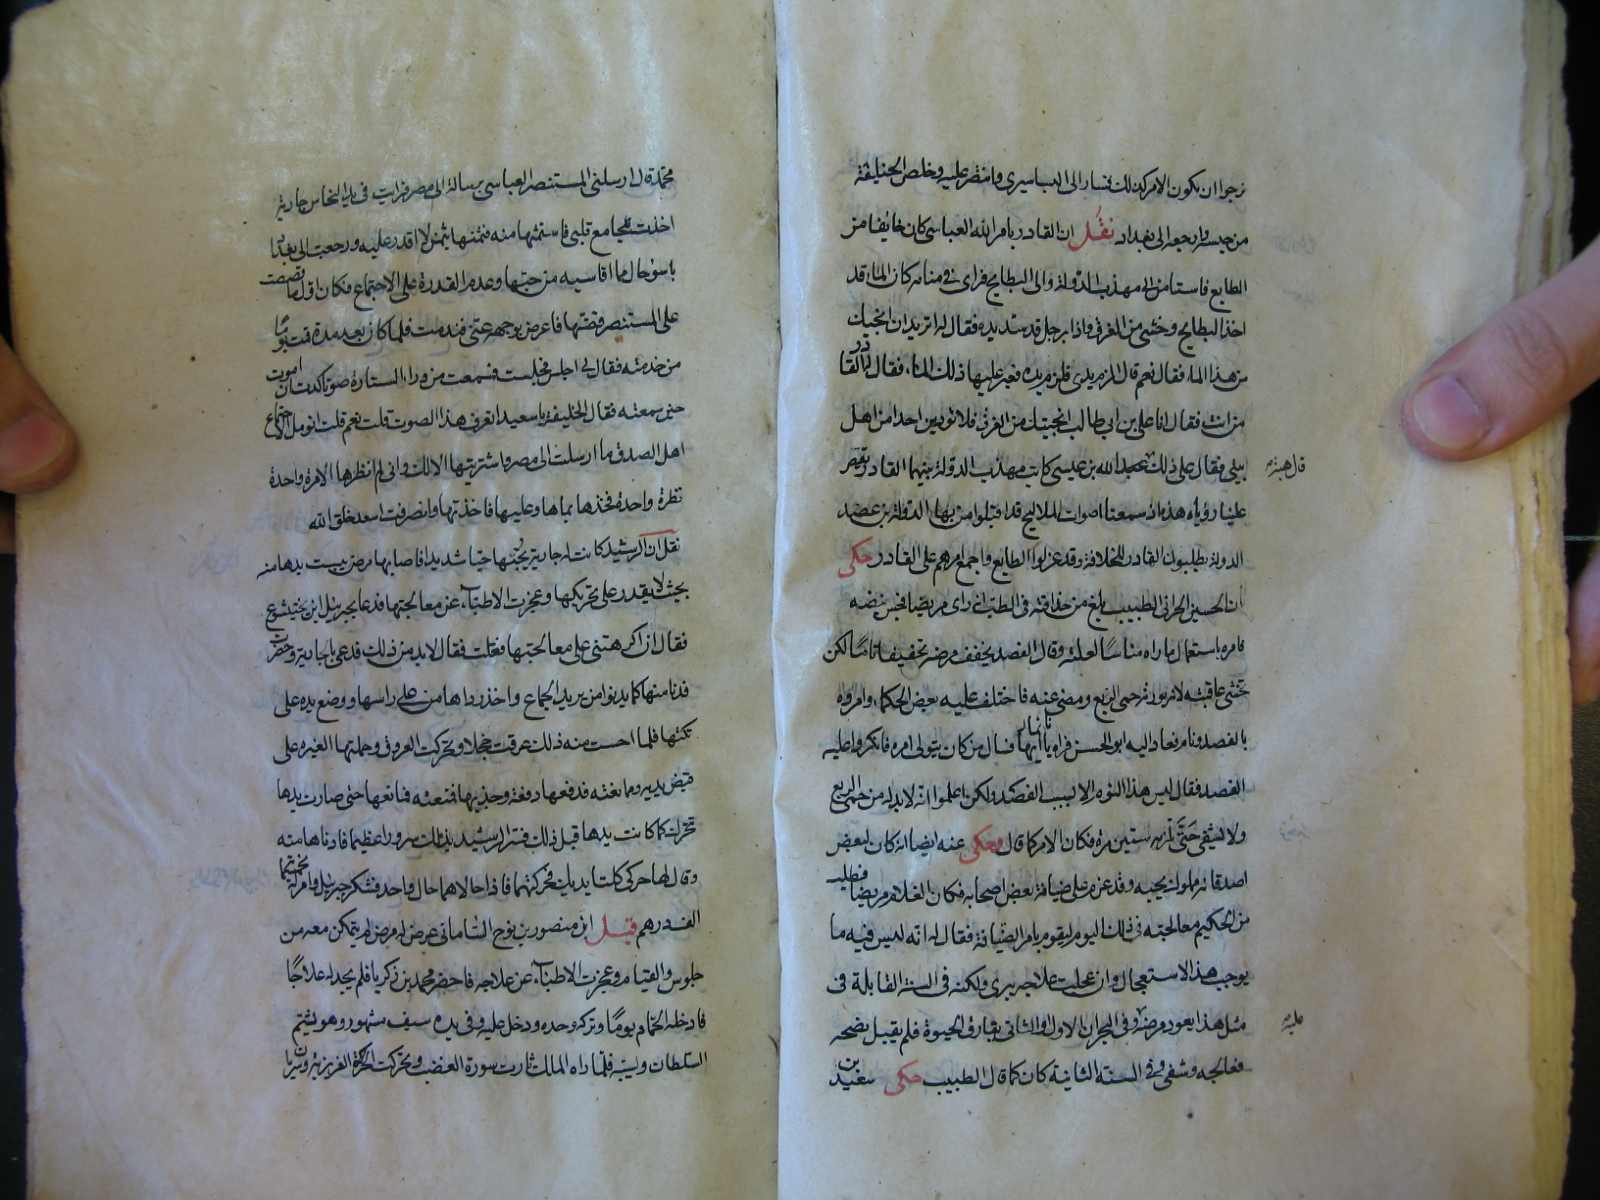 نرجوا ان يكون الامر كذلك فسار الى البساسيري وانتصر عليه وخلص الخليفة
من حبسه وارجعه الى بغداد نقل ان القادر بامر الله العباسى كان خايفا من
الطايع فاستامن الى مهذب الدولة والى البطايح فراى فى منامه كان الماء قد
اخذ البطايح وخشى من الغرق واذا برجل قد مد يده فقال له اتريد ان انجيك
من هذا الماء فقال نعم قال فعبر عليها ذلك الماء فقال له القادر
من انت فقال انا على بن ابى طالب انجيتك من الغرق فلا تؤدين احدا من اهل
بيتى فقال على ذلك عبد الله بن عيسى كاتب مهذب الدولة بينهما القادر يقص
علينا رؤياه هذه اذ سمعنا اصوات الملاليح قد اقبلوا من بهاء الدولة بن عضد
الدولة يطلبون القادر للخلافة وقد عزلوا الطايع واجمع امرهم على القادر حكى
ان الحسين الحرانى الطبيب بلغ من حذاقته فى الطب انه راى مريضا فجس نبضه
فامره باستعمال ما راه مناسبا لعلته وقال الفصد يخفف مرضه تخفيفا تاما لكن
تخشى عاقبته لانه يورث حمى الربع ومضى عنه فاختلف عليه بعض الحكماء وامروه
بالفصد ونام فعاد اليه ابو الحسن فراه نائما فسال من كان يتولى امره فانكروا عليه
الفصد فقال ليس هذا النوم الا بسبب الفصد ولكن اعلموا انه لابد له من حمى الربع
ولا يشفى حتى ستين مرة فكان الامر كما قال وحكى عنه ايضا انه كان لبعض
اصدقائه مملوك يحبه وقد عزم على ضيافة بعض اصحابه فكان الغلام مريضا فطلب
من الحكيم معالجته فى ذلك اليوم ليقوم بامر الضيافة فقال له انه ليس فيه ما
يوجب هذا الاستعجال وان عجلت علاجه يبرى ولكنه فى السنة القابلة فى
مثل هذا يعود مرضه وفى البحران الاول او الثانى يفارق الحيوة فلم يقبل نصحه
فعالجه وشفى وفى السنة الثانية كان كما قال الطبيب حكى سعيد بن
عليه
محمد قال ارسلنى المستنصر العباسى برسالة الى مصر فرايت فى يد النخاس جارية
اخذت بمجامع قلبى فاستثمنتها منه فثمنها بثمن لا اقدر عليه ورجعت الى بغداد
باسوء حال مما اقاسيه من حبها وعدم القدرة على الاجتماع فكان اول ما قصصت
على المستنصر قصتها فاعرض بوجهه عنى فندمت فلما كان بعد مدة قمت يوما
من خدمته فقال لى اجلس فجلست فسمعت من وراء الستارة صوتا كدت ان اموت
حين سمعته فقال الخليفة يا سعيد اتعرف هذا الصوت قلت نعم قلت
اهل الصدق ما ارسلت الى مصر واشتريتها الا لك وانى لم انظرها الا مرة واحدة
نظرة واحدة فخذها بما لها وعليها فاخذتها وانصرفت اسعد خلق الله
نقل ان الرشيد كانت له جارية يحبها حبا شديدا فاصابها مرض يبست يدها منه
بحيث لا يقدر على تحريكها وعجزت الاطباء عن معالجتها فدعا بجبرئيل ابن بختيشوع
فقال ان اكرهتنى على معالجتها فعلت فقال لابد من ذلك فدعى بالجارية وحضرت
فدنا منها كما يدنوا من يريد الجماع واخذ رداها من على راسها ووضع يده على
تكتها فلما احست منه ذلك عرقت خجلا وتحركت العروق وحملتها الغيره على
قبض يديه وممانعته فدفعها دفعة وجذبها فمنعته فمانعها حتى صارت يدها
تحرك كما كانت يدها قبل ذلك فسر الرشيد بذلك سرورا عظيما فادناها منه
وقال لها حركى كلتا يديك فحركتهما فاذا حالاهما حال واحد فشكر جبريل وامر له بخمسمائة
الف درهم قيل ان منصور بن نوح السامانى عرض له مرض لم يتمكن معه من
جلوس والقيام وعجزت الاطباء عن علاجه فاحضر محمد بن زكريا فلم يجد له علاجا
فادخله الحمام يوما وتركه وحده ودخل عليه وفى يده سيف مشهور وهو يشتم
السلطان ويسبه فلما راه الملك ثارت سورة الغضب وتحركت الحركة الغريزية